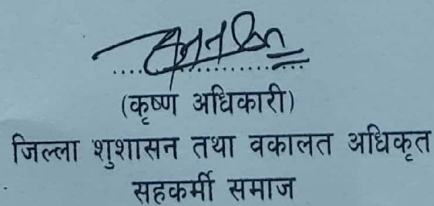 (कृष्ण अधिकारी)
जिल्ला शुशासन तथा वकालत अधिकृत
सहकर्मी समाज